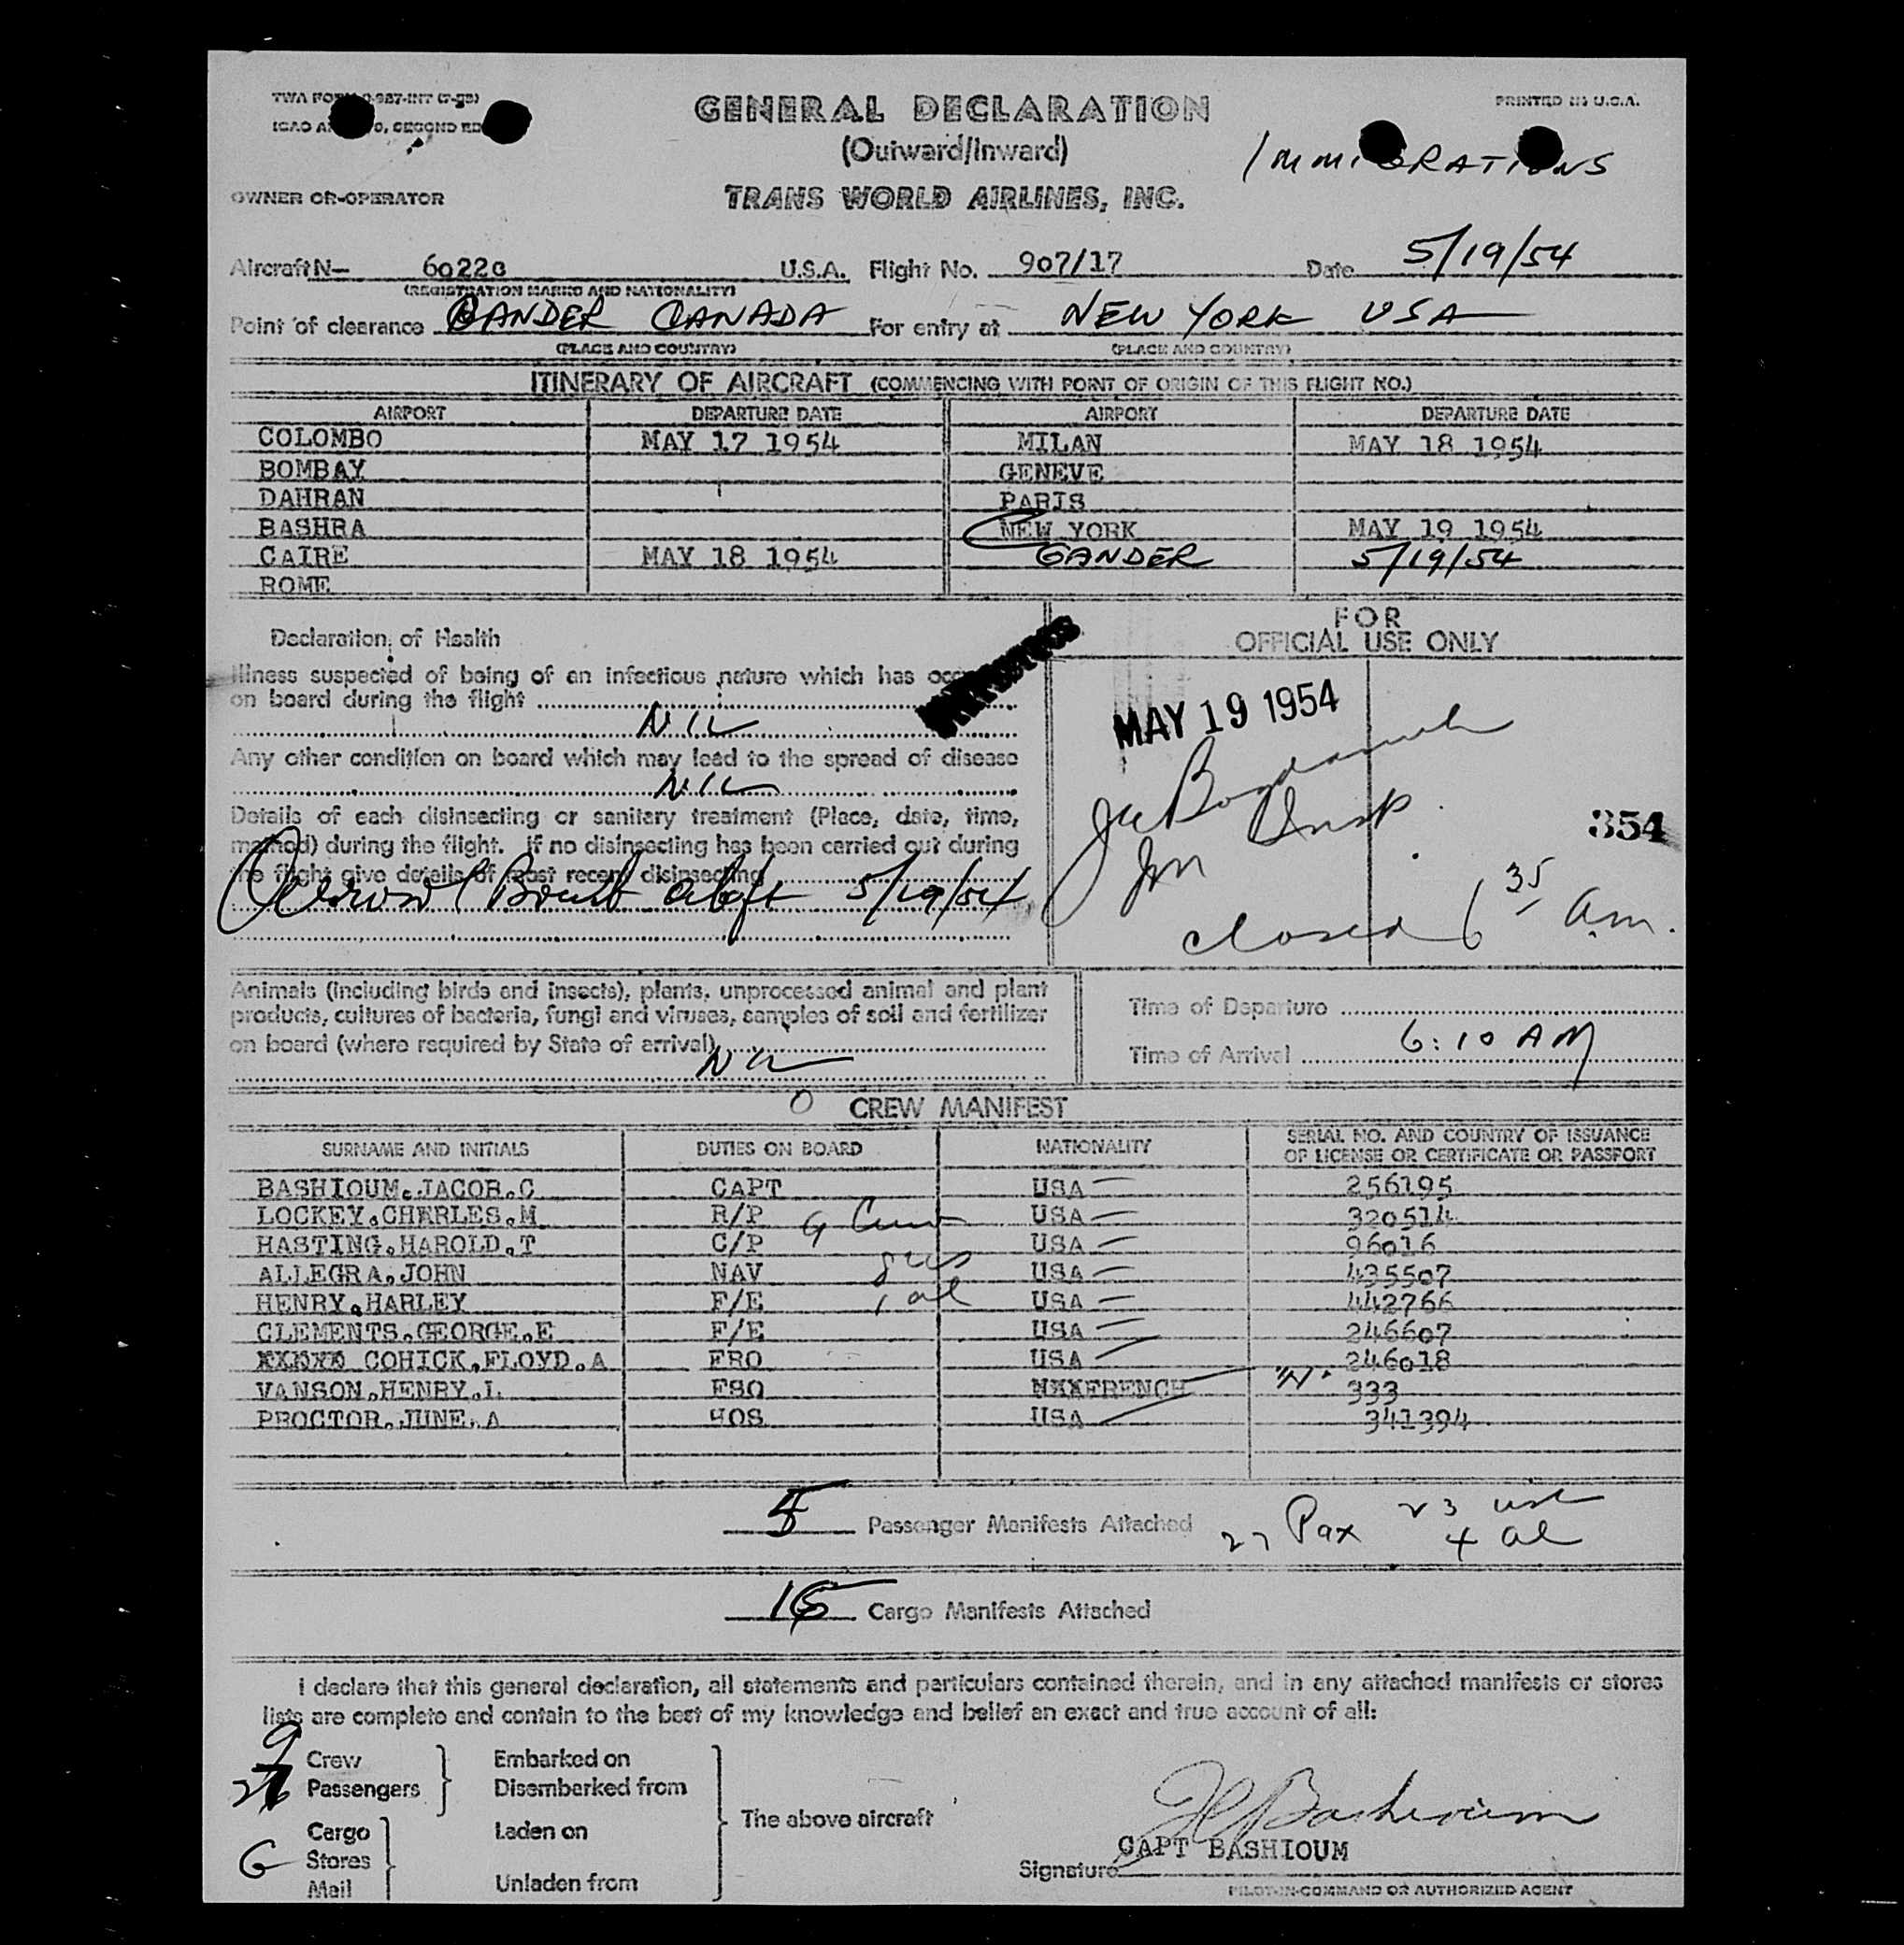 TWA FORM
PRINTED IN U.S.A.
GENERAL DECLARATION
(Outward/Inward)
IMMIGRATIONS
OWNER OR OPERATOR
TRANS WORLD AIRLINES, INC.
Aircraft N- U.S.A. Flight No. 907/17 Date 5/19/54
(REGISTRATION MARKS AND NATIONALITY)
Point of clearance GANDER CANADA For entry at NEW YORK USA
(PLACE AND COUNTRY) (PLACE AND COUNTRY)
ITINERARY OF AIRCRAFT (COMMENCING WITH POINT OF ORIGIN OF THIS FLIGHT NO.)
AIRPORT DEPARTURE DATE AIRPORT DEPARTURE DATE
COLOMBO MAY 17 1954 MILAN MAY 18 1954
BOMBAY GENEVE
DAHRAN PARIS
BASHRA NEW YORK MAY 19 1954
CAIRE MAY 18 1954 GANDER 5/19/54
ROME
FOR
OFFICIAL USE ONLY
Declaration of Health
Illness suspected of being of an infectious nature which has
on board during the flight
NIL
MAY 19 1954
Any other condition on board which may lead to the spread of disease
NIL
Details of each disinsecting or sanitary treatment (Place, date, time,
method) during the flight. If no disinsecting has been carried out during
the flight give details of most recent disinsecting
Aerosol Bomb aloft 5/19/54
Insp
354
closed 6 35 a.m.
Animals (including birds and insects), plants, unprocessed animal and plant
products, cultures of bacteria, fungi and viruses, samples of soil and fertilizer
on board (where required by State of arrival)
NIL
Time of Departure
Time of Arrival 6:10 AM
CREW MANIFEST
SURNAME AND INITIALS DUTIES ON BOARD NATIONALITY SERIAL NO. AND COUNTRY OF ISSUANCE OF LICENSE OR CERTIFICATE OR PASSPORT
BASHIOUM.JACOB.C CAPT USA 256195
LOCKEY.CHARLES.M R/P USA 320514
HASTING.HAROLD.T C/P USA 96016
ALLEGRA.JOHN NAV USA 435507
HENRY.HARLEY F/E USA 442766
CLEMENTS.GEORGE.E F/E USA 246607
COHICK.FLOYD.A FRO USA 246018
VANSON.HENRY.L FSO FRENCH 333
PROCTOR.JUNE.A HOS USA 341394
9 Crew
8 US
1 al
5 Passenger Manifests Attached
27 Pax 23 USC
4 al
15 Cargo Manifests Attached
I declare that this general declaration, all statements and particulars contained therein, and in any attached manifests or stores
lists are complete and contain to the best of my knowledge and belief an exact and true account of all:
9 Crew
27 Passengers
Embarked on
Disembarked from
Cargo
Stores
Mail
Laden on
Unladen from
The above aircraft
JC Bashioum
CAPT BASHIOUM
Signature
PILOT-IN-COMMAND OR AUTHORIZED AGENT